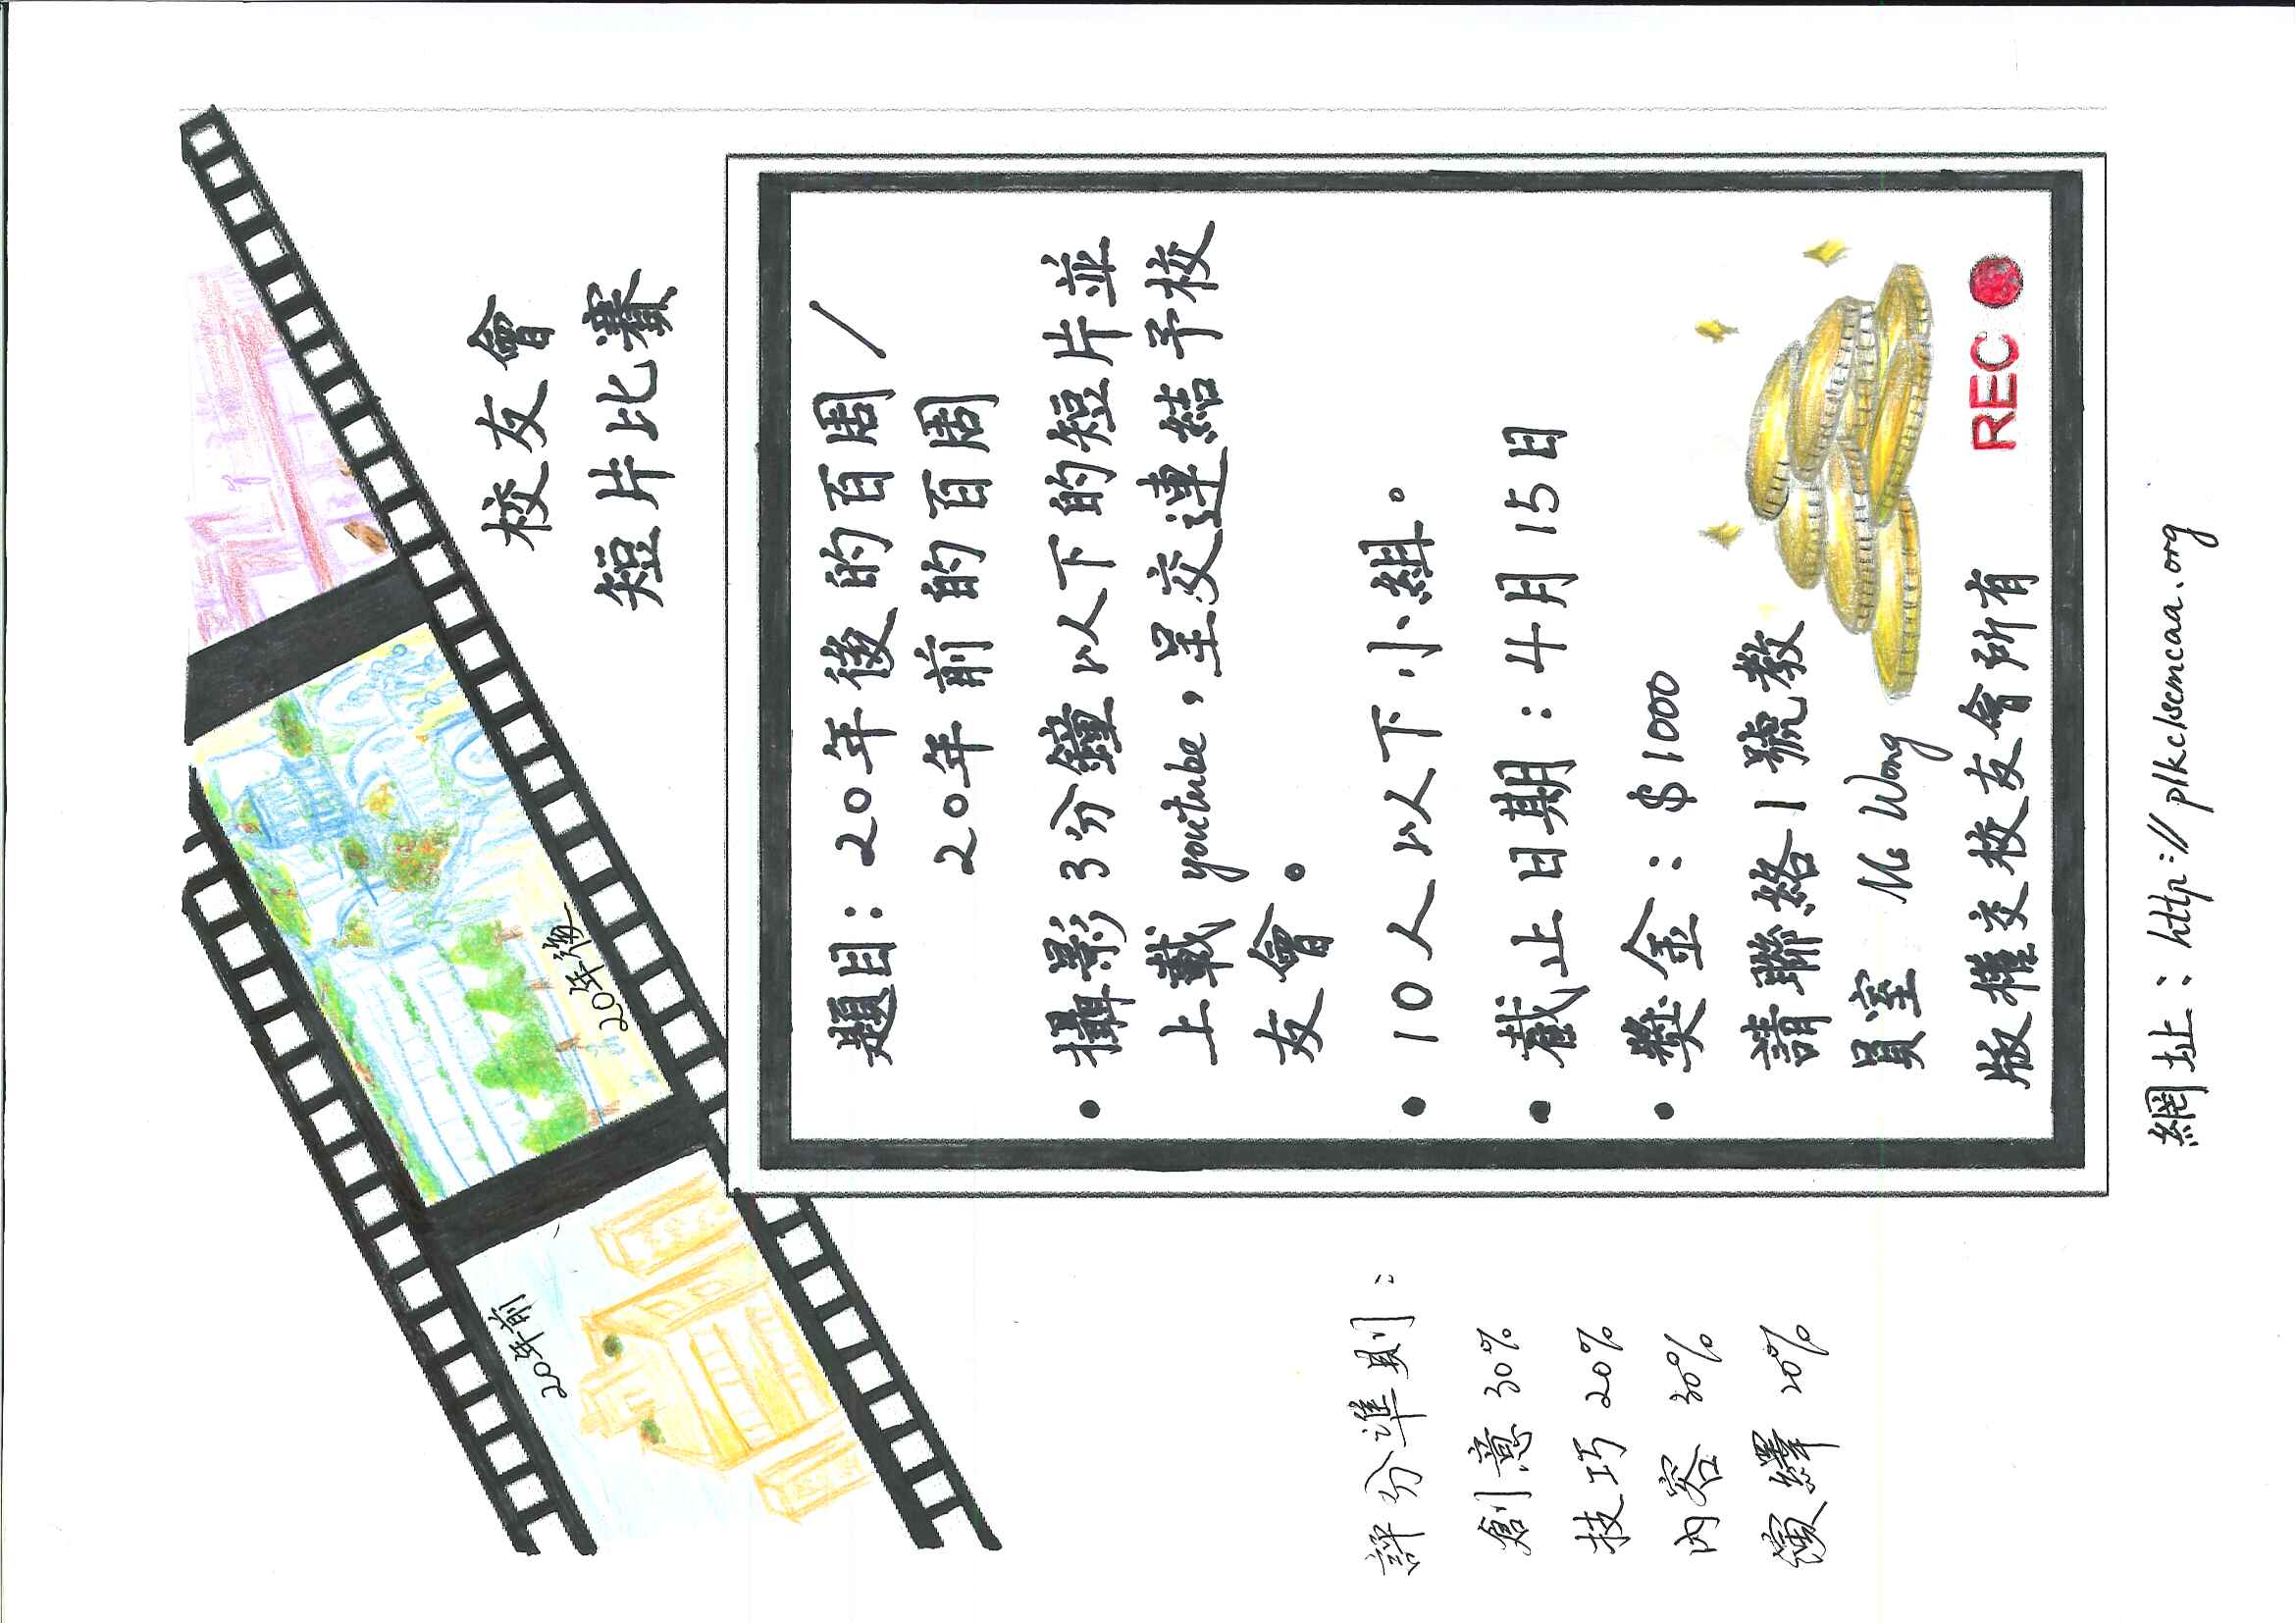 校友會
短片比賽
20年前
20年後
題目：20年後的百周/
20年前的百周
• 攝影3分鐘以下的短片並
上載youtube，呈交連結予校
友會。
• 10人以下小組。
• 截止日期：4月15日
• 獎金：$1000
請聯絡1號教
員室 Ms Wong
版權交校友會所有
REC
評分準則：
創意 30%
技巧 20%
內容 30%
演繹 20%
網址：http://plkclscmcaa.org